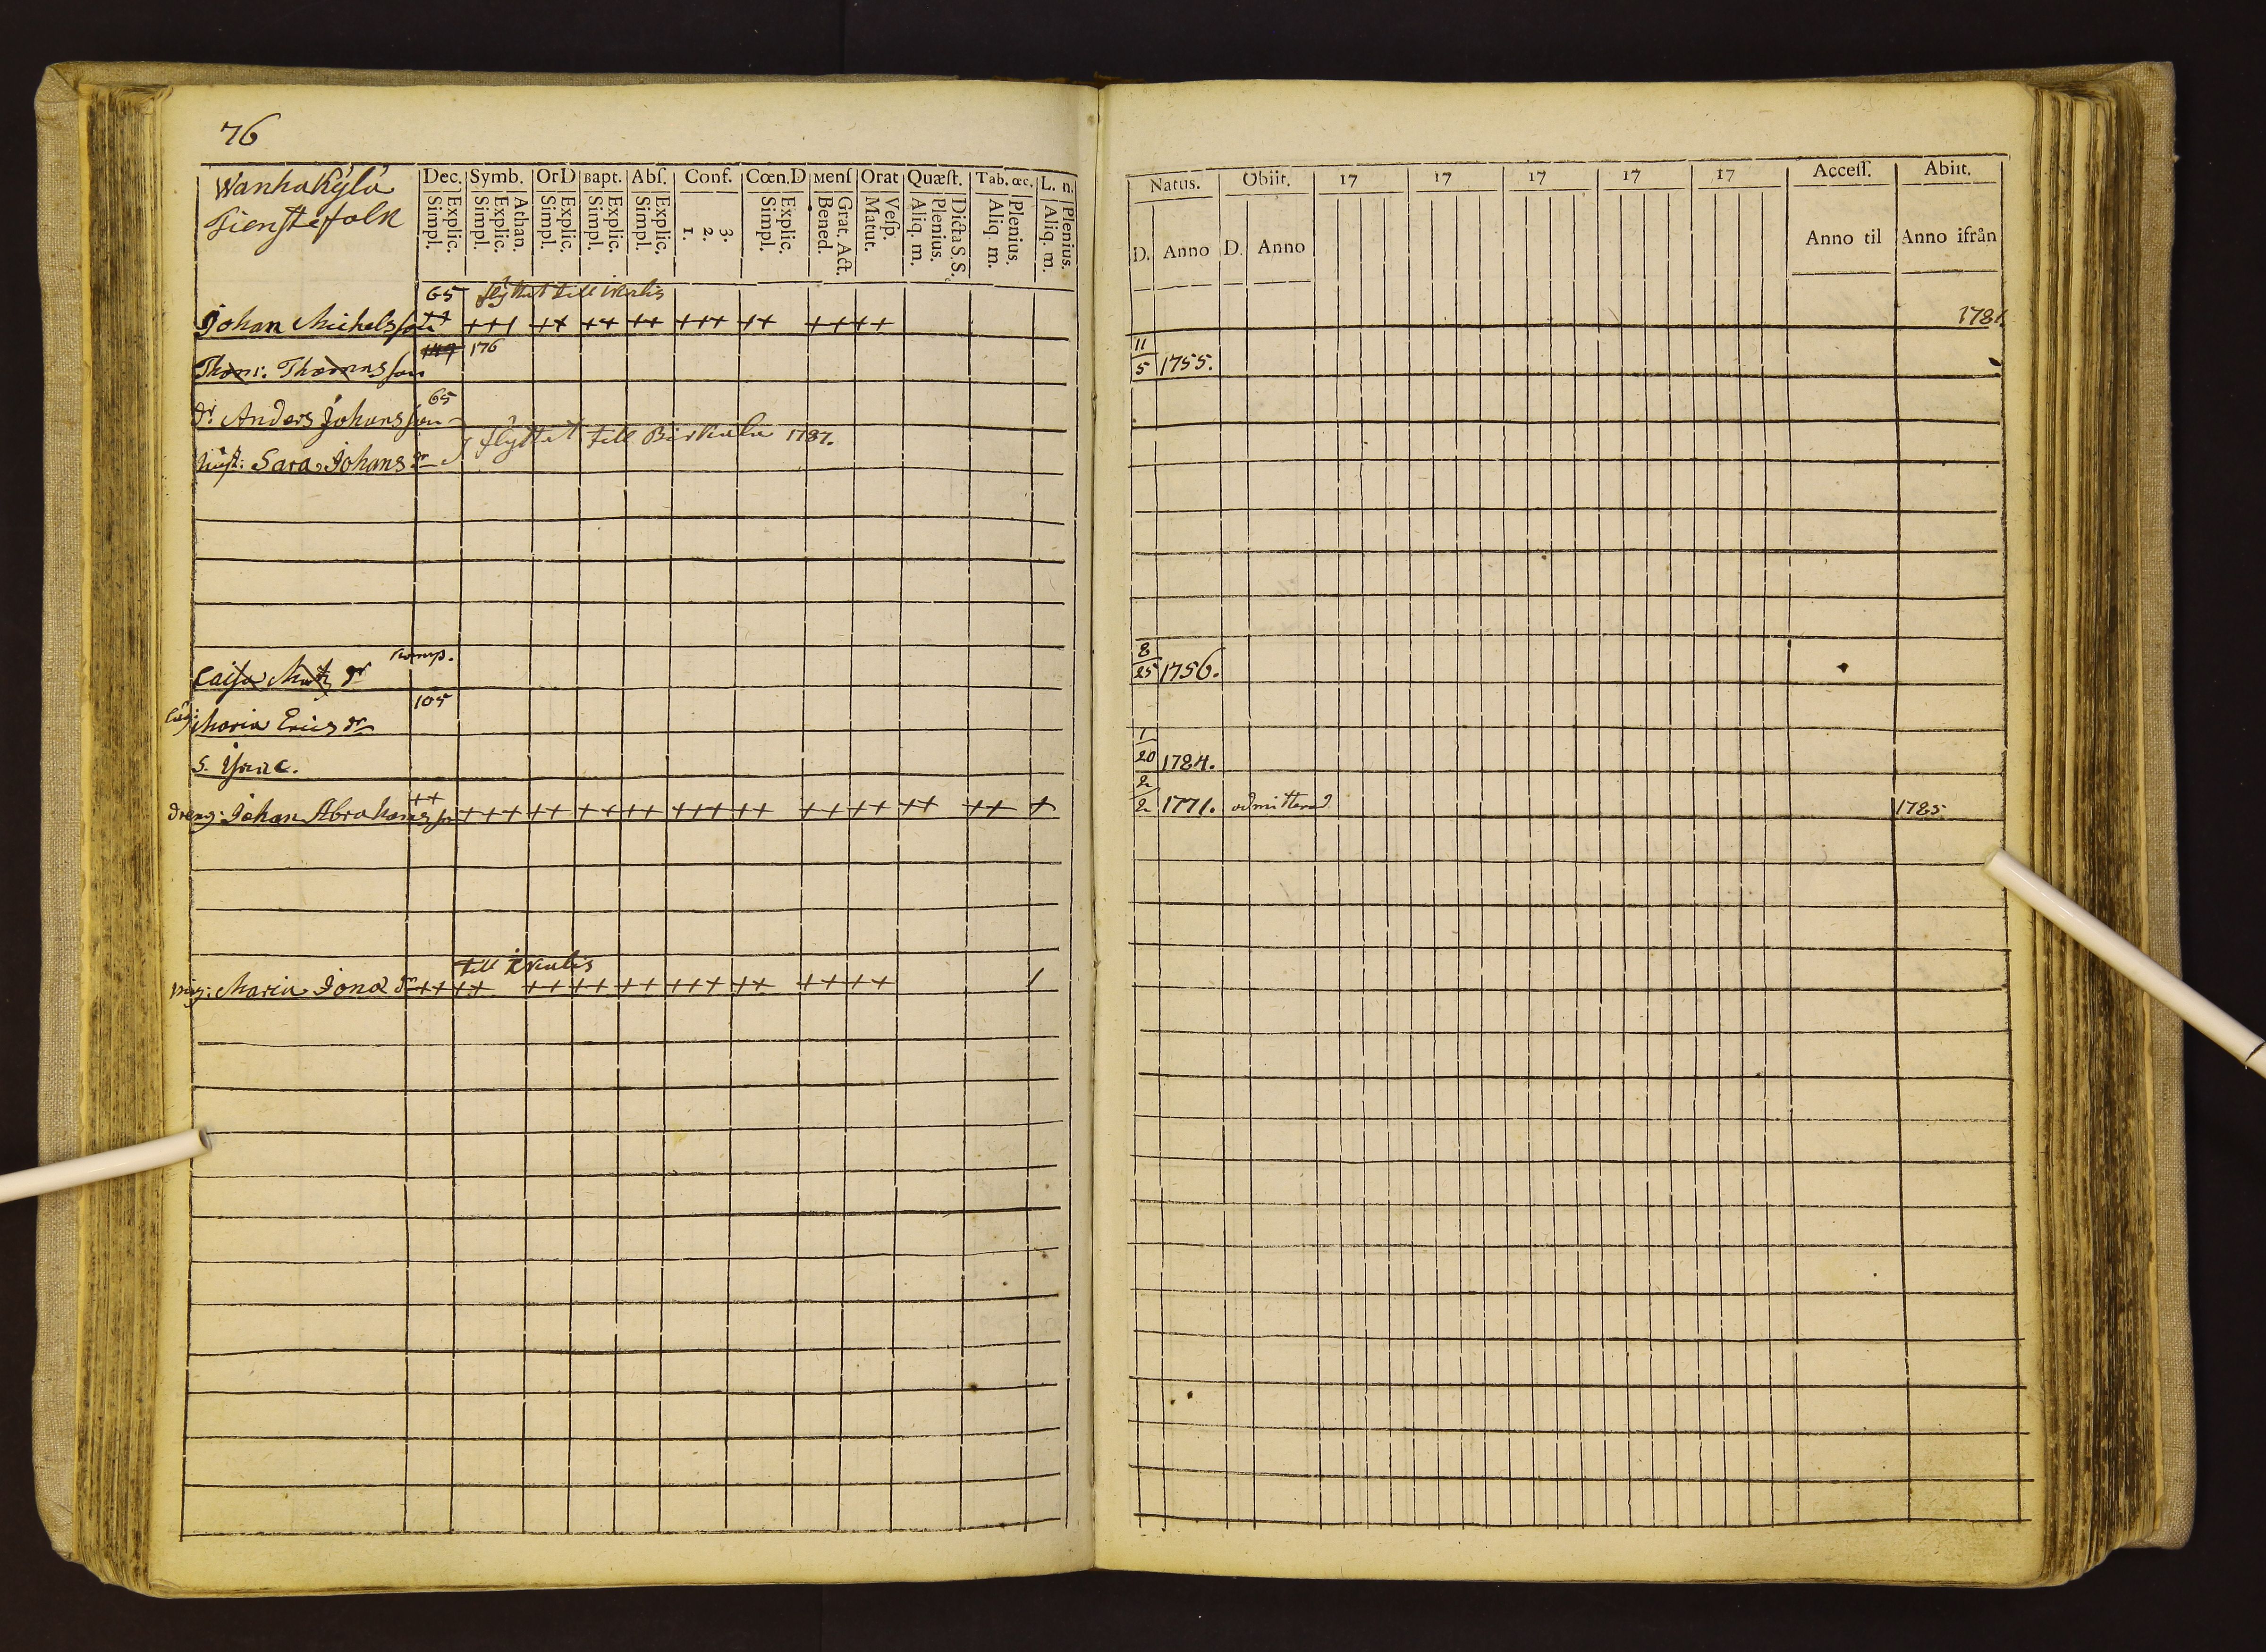 76
Wanhakylä
Tienstefolk
Dec. Symb. OrD Bapt. Abſ. Conf. Cœn.D Menſ Orat Quæſt. Tab. œc. L. n.
Simpl. Explic. Simpl. Explic. Athan. Simpl. Explic. Simpl. Explic. Simpl. Explic. 1. 2. 3. Simpl. Explic. Bened. Grat. Act. Matut. Veſp. Aliq. m. Plenius. Dicta S.S. Aliq. m. Plenius. Aliq. m. Plenius.
65 flyttat till
Johan Michelsson ++ +++ ++ ++ ++ +++ ++ ++++
149 176
Thom: Thomasson
65
dr Anders Johansson
flyttat till Birkala 1787.
hust: Sara Johans dr
Caisa Matz dr
105
Maria Erics dr
S. Isaac.
dreng: Johan Abrahamsson ++ +++ ++ ++ ++ +++ ++ ++ ++ ++ ++ +
till
pig: Maria Jona dr ++ ++ ++ ++ ++ +++ ++ ++++ /
Natus. Obiit. 17 17 17 17 17 Acceſſ. Abiit.
D. Anno D. Anno Anno til Anno ifrån
1781.
11
5 1755.
8
25 1756.
1
20 1784.
2
2 1771. admitterad 1785